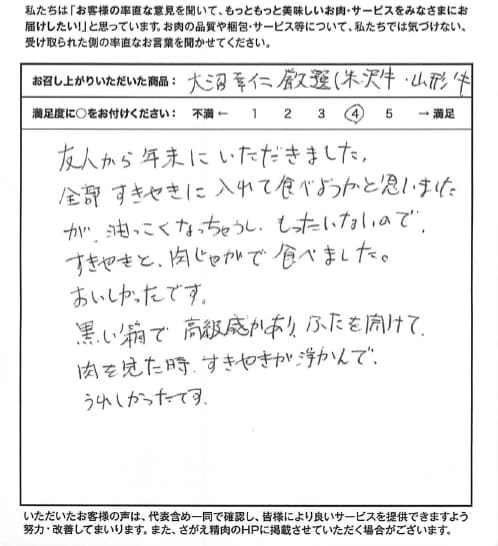 私たちは「お客様の率直な意見を聞いて、もっともっと美味しいお肉・サービスをみなさまにお
届けしたい!」と思っています。お肉の品質や梱包・サービス等について、私たちでは気づけない、
受け取られた側の率直なお言葉を聞かせてください。
お召し上がりいただいた商品： 大沼幸仁厳選(米沢牛・山形牛
満足度に○をお付けください： 不満 ← 1 2 3 4 5 → 満足
友人から年末にいただきました。
全部すきやきに入れて食べようかと思いました
が、油っこくなっちゃうし、もったいないので、
すきやきと、肉じゃがで食べました。
おいしかったです。
黒い箱で高級感があり、ふたを開けて、
肉を見た時、すきやきが浮かんで、
うれしかったです。
いただいたお客様の声は、代表含め一同で確認し、皆様により良いサービスを提供できますよう
努力・改善してまいります。また、さがえ精肉のHPに掲載させていただく場合がございます。